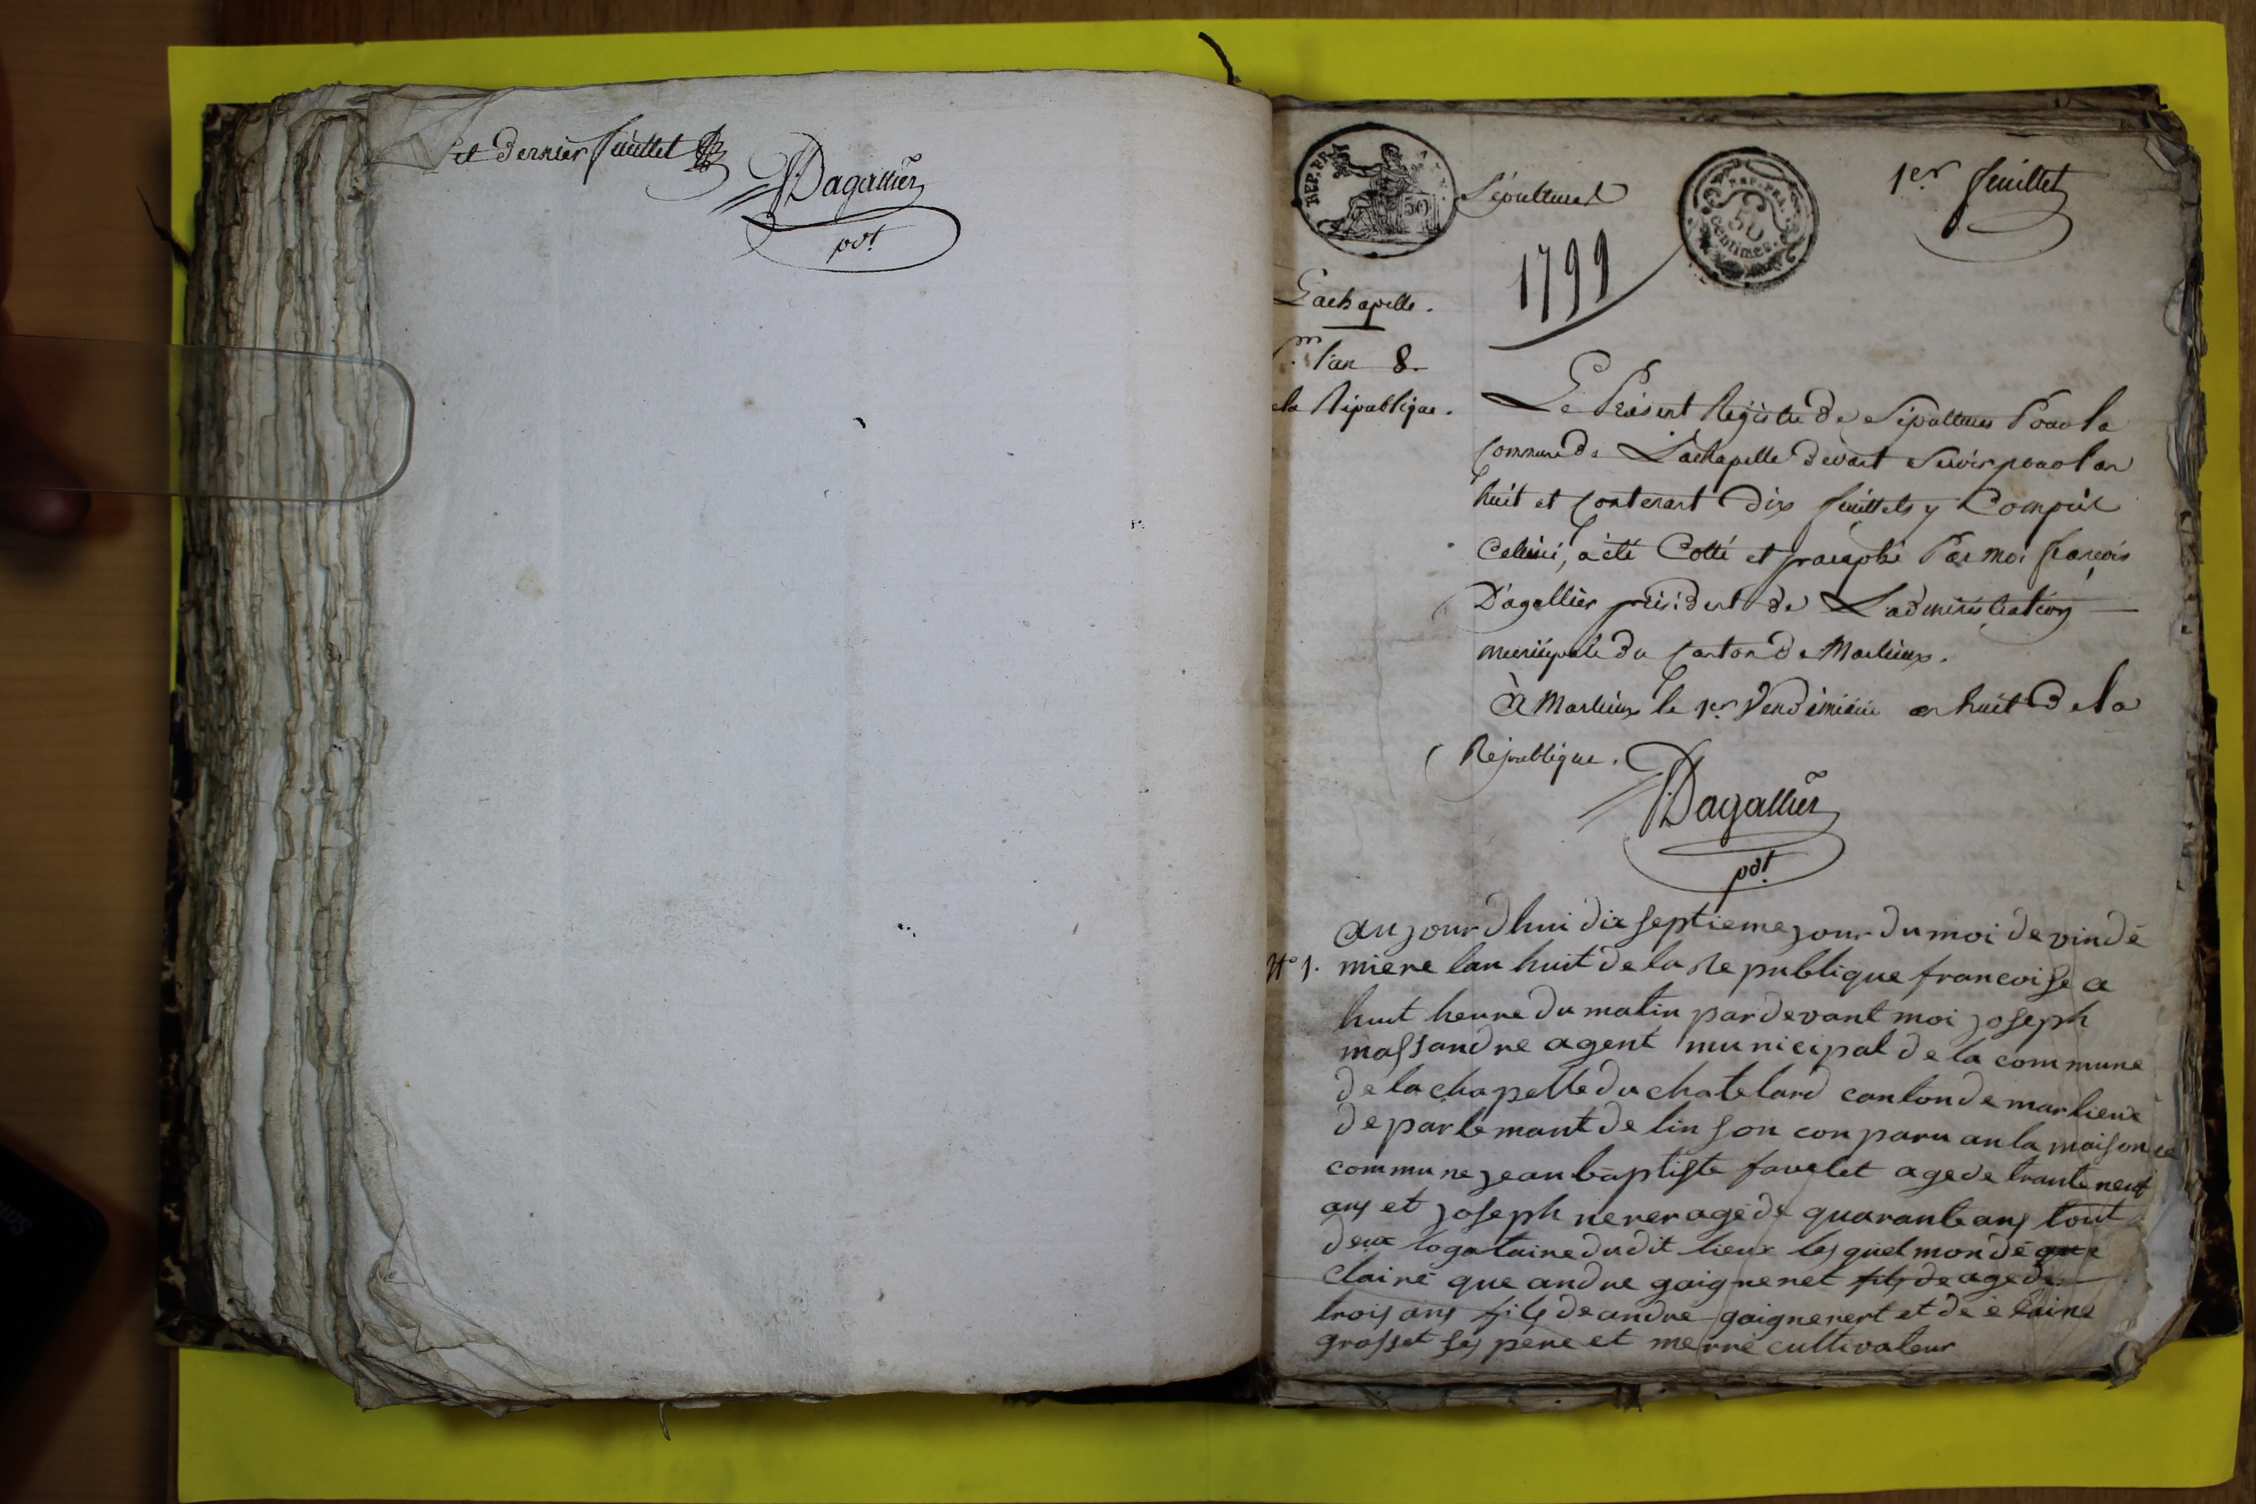 et dernier feuillet
Dagallier
pdt
REP. FRA
50
Sépultures
REP. FRA.
50
Centimes
1er feuillet
1799
Lachapelle.
l'an 8.
la République.
Le Présent Régistre de Sépultures Pour la
Commune de Lachapelle devant Servir pour l'an
huit et Contenant dix feuillets y Compris
Celuici, a été Cotté et paraphé Par moi françois
Dagallier président de L'administration
municipale du Canton de Marlieux.
à Marlieux le 1er Vendémiaire an huit de la
République.
Dagallier
pdt
aujourdhui dix septieme jour du moi de vindé
N° 1. miere lan huit de la Republique francoise a
huit heure du matin pardevant moi joseph
massandre agent municipal de la commune
de la chapelle du chatelard canton de marlieux
departemant de lin son conparu an la maison
commune jean baptiste favelet age de trante neuf
ans et joseph nerer agé de quarante ans tout
deux logataire du dit lieux lesquel mon dé que
clairé que andre gaignenet fils de age de
trois ans fils de andre gaignenert et de
grosset ses pere et merre cultivateur